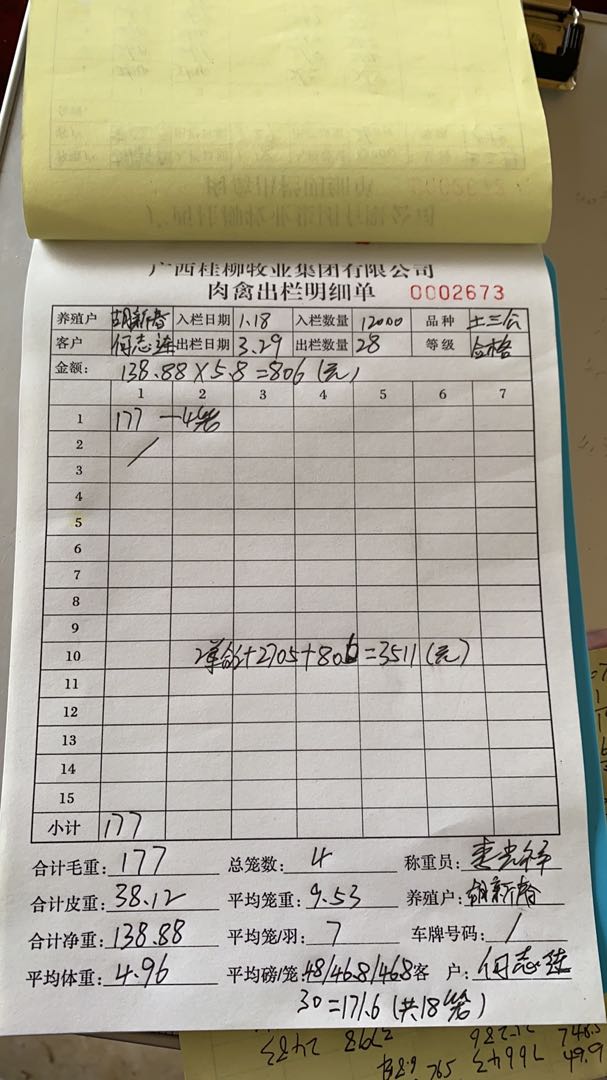 广西桂柳牧业集团有限公司
肉禽出栏明细单 0002673
养殖户 胡新春 入栏日期 1.18 入栏数量 12000 品种 土三公
客户 何志连 出栏日期 3.29 出栏数量 28 等级 合格
金额: 138.88×5.8=806(元)
1 2 3 4 5 6 7
1 177 一4笼
2
3
4
5
6
7
8
9
10 2单合计2705+806=3511(元)
11
12
13
14
15
小计 177
合计毛重: 177 总笼数: 4 称重员:
合计皮重: 38.12 平均笼重: 9.53 养殖户: 胡新春
合计净重: 138.88 平均笼/羽: 7 车牌号码: /
平均体重: 4.96 平均磅/笼: 48/46.8/46.8 客户: 何志连
30=171.6(共18笼)